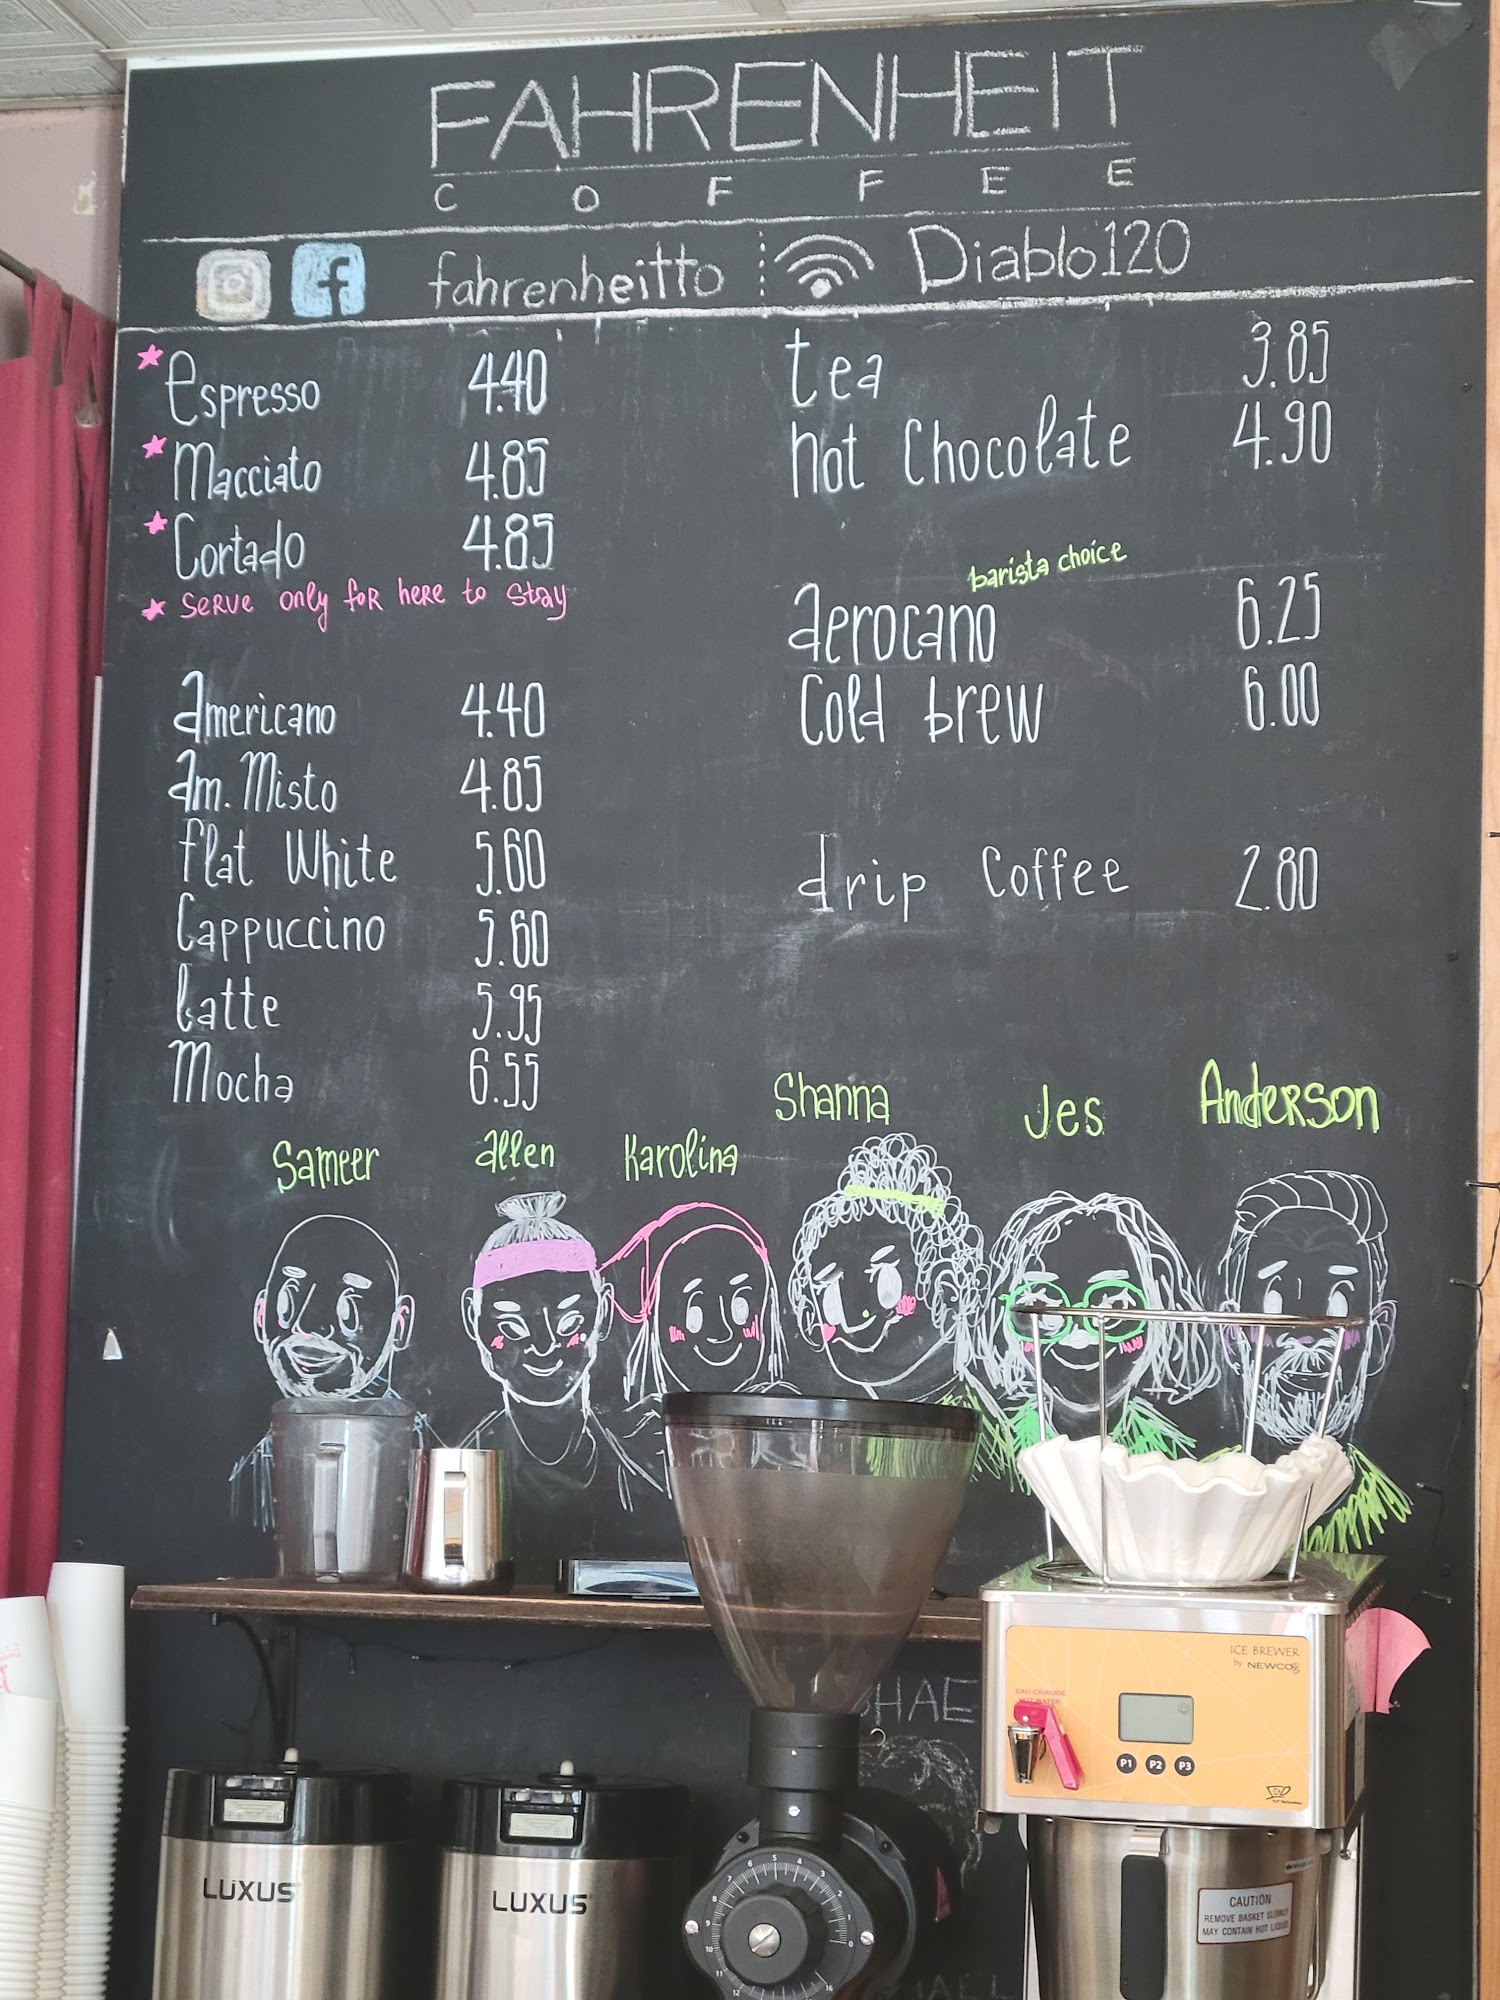 FAHRENHEIT
COFFEE
fahrenheitto
Diablo120
★ espresso 4.40
★ Macciato 4.85
★ Cortado 4.85
★ SERVE only foR heRe to Stay
americano 4.40
am. Misto 4.85
flat White 5.60
Cappuccino 5.60
Latte 5.95
Mocha 6.55
tea 3.85
hot Chocolate 4.90
barista choice
aerocano 6.25
Cold brew 6.00
drip Coffee 2.80
Sameer
allen
Karolina
Shanna
Jes
Anderson
ICE BREWER
by NEWCO
EAU CHAUDE
HOT WATER
P1 P2 P3
LUXUS
LUXUS
CAUTION
REMOVE BASKET SLOWLY
MAY CONTAIN HOT LIQUID